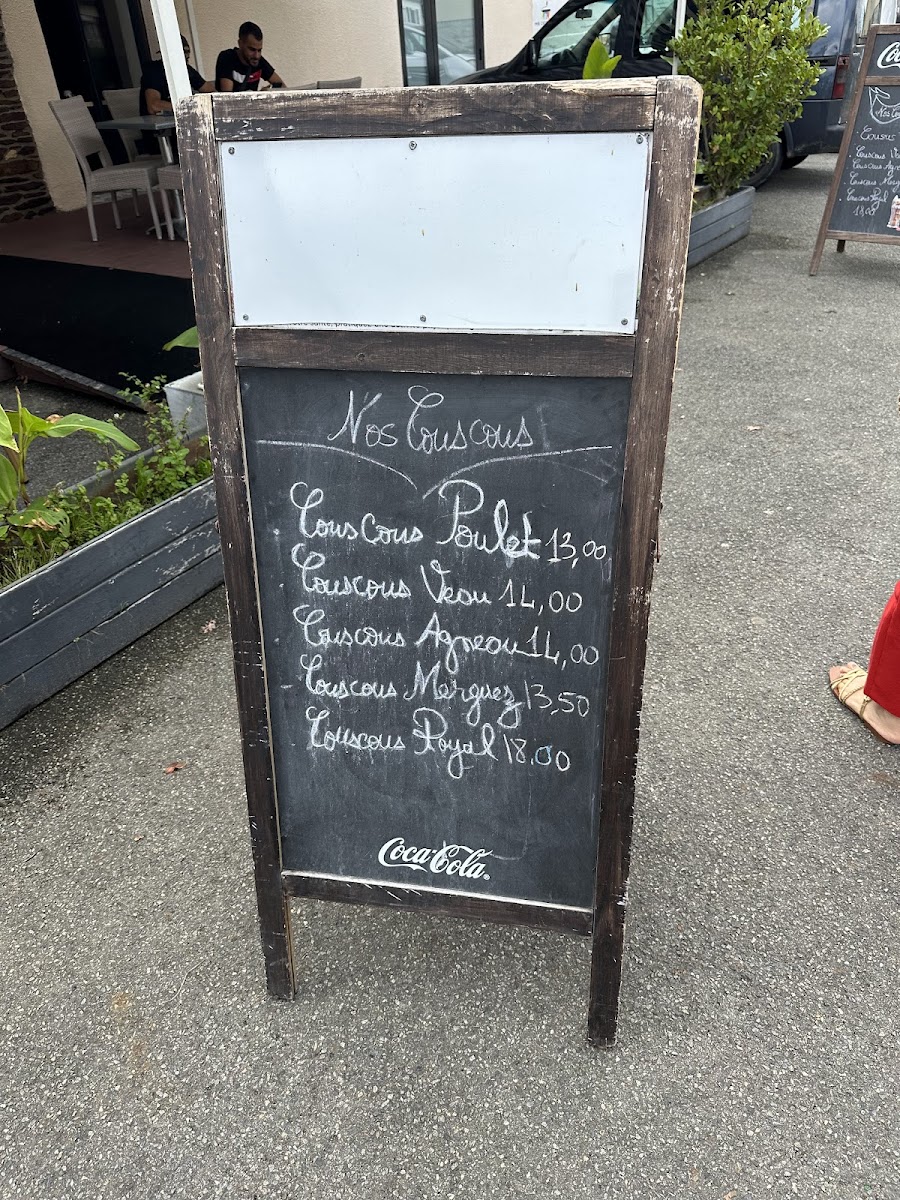 Nos Couscous
Couscous Poulet 13,00
Couscous Veau 14,00
Couscous Agneau 14,00
- Couscous Merguez 13,50
Couscous Royal 18.00
Coca-Cola
Nos Cou
Couscous
Couscous Agne
Couscous Merg
Couscous Royal
18,00